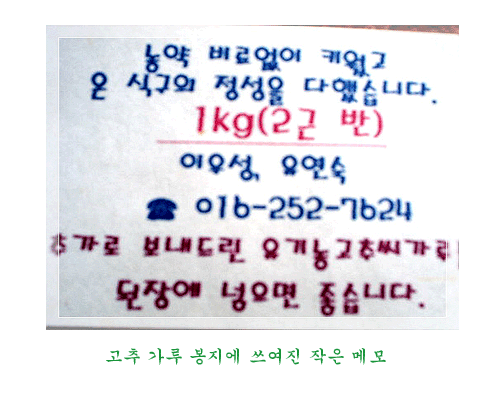 농약 비료없이 키웠고
온 식구의 정성을 다했습니다.
1kg(2근 반)
이우성, 유연숙
☎ 016-252-7624
추가로 보내드린 유기농고추씨가루
된장에 넣으면 좋습니다.
고추 가루 봉지에 쓰여진 작은 메모